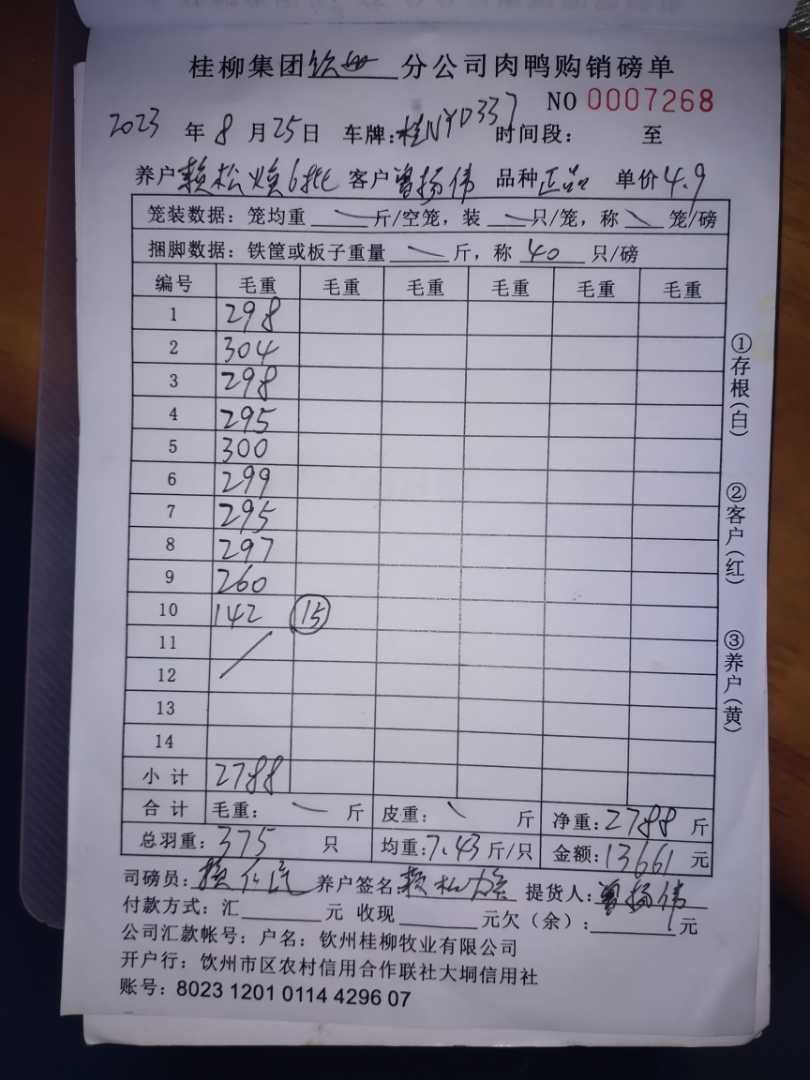 桂柳集团钦州分公司肉鸭购销磅单
NO 0007268
2023年8月25日 车牌:桂NYD337 时间段: 至
养户赖松焕6批 客户曾扬伟 品种正品 单价4.9
笼装数据:笼均重 斤/空笼,装 只/笼,称 笼/磅
捆脚数据:铁筐或板子重量 斤,称 40 只/磅
编号 毛重 毛重 毛重 毛重 毛重 毛重
1 298
2 304
3 298
4 295
5 300
6 299
7 295
8 297
9 260
10 142 15
11
12
13
14
小计 2788
合计 毛重: 斤 皮重: 斤 净重:2788斤
总羽重:375 只 均重:7.43斤/只 金额:13661元
司磅员: 养户签名:赖松焕 提货人:曾扬伟
付款方式:汇 元 收现 元欠(余): 元
公司汇款帐号:户名:钦州桂柳牧业有限公司
开户行:饮州市区农村信用合作联社大垌信用社
账号:8023 1201 0114 4296 07
①存根(白)
②客户(红)
③养户(黄)